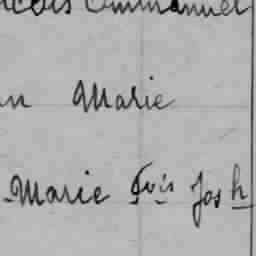 ncois Emmanuel
n Marie
Marie Fois Josh